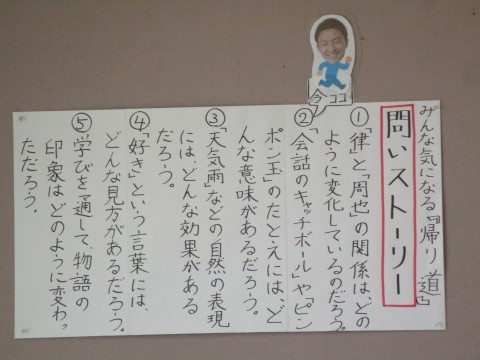 今ココ
みんな気になる『帰り道』
問いストーリー
①「律」と「周也」の関係はどの
ように変化しているのだろう。
②「会話のキャッチボール」や「ピン
ポン玉」のたとえには、ど
んな意味があるだろう。
③「天気雨」などの自然の表現
には、どんな効果がある
だろう。
④「好き」という言葉には、
どんな見方があるだろう。
⑤学びを通して、物語の
印象はどのように変わっ
ただろう。